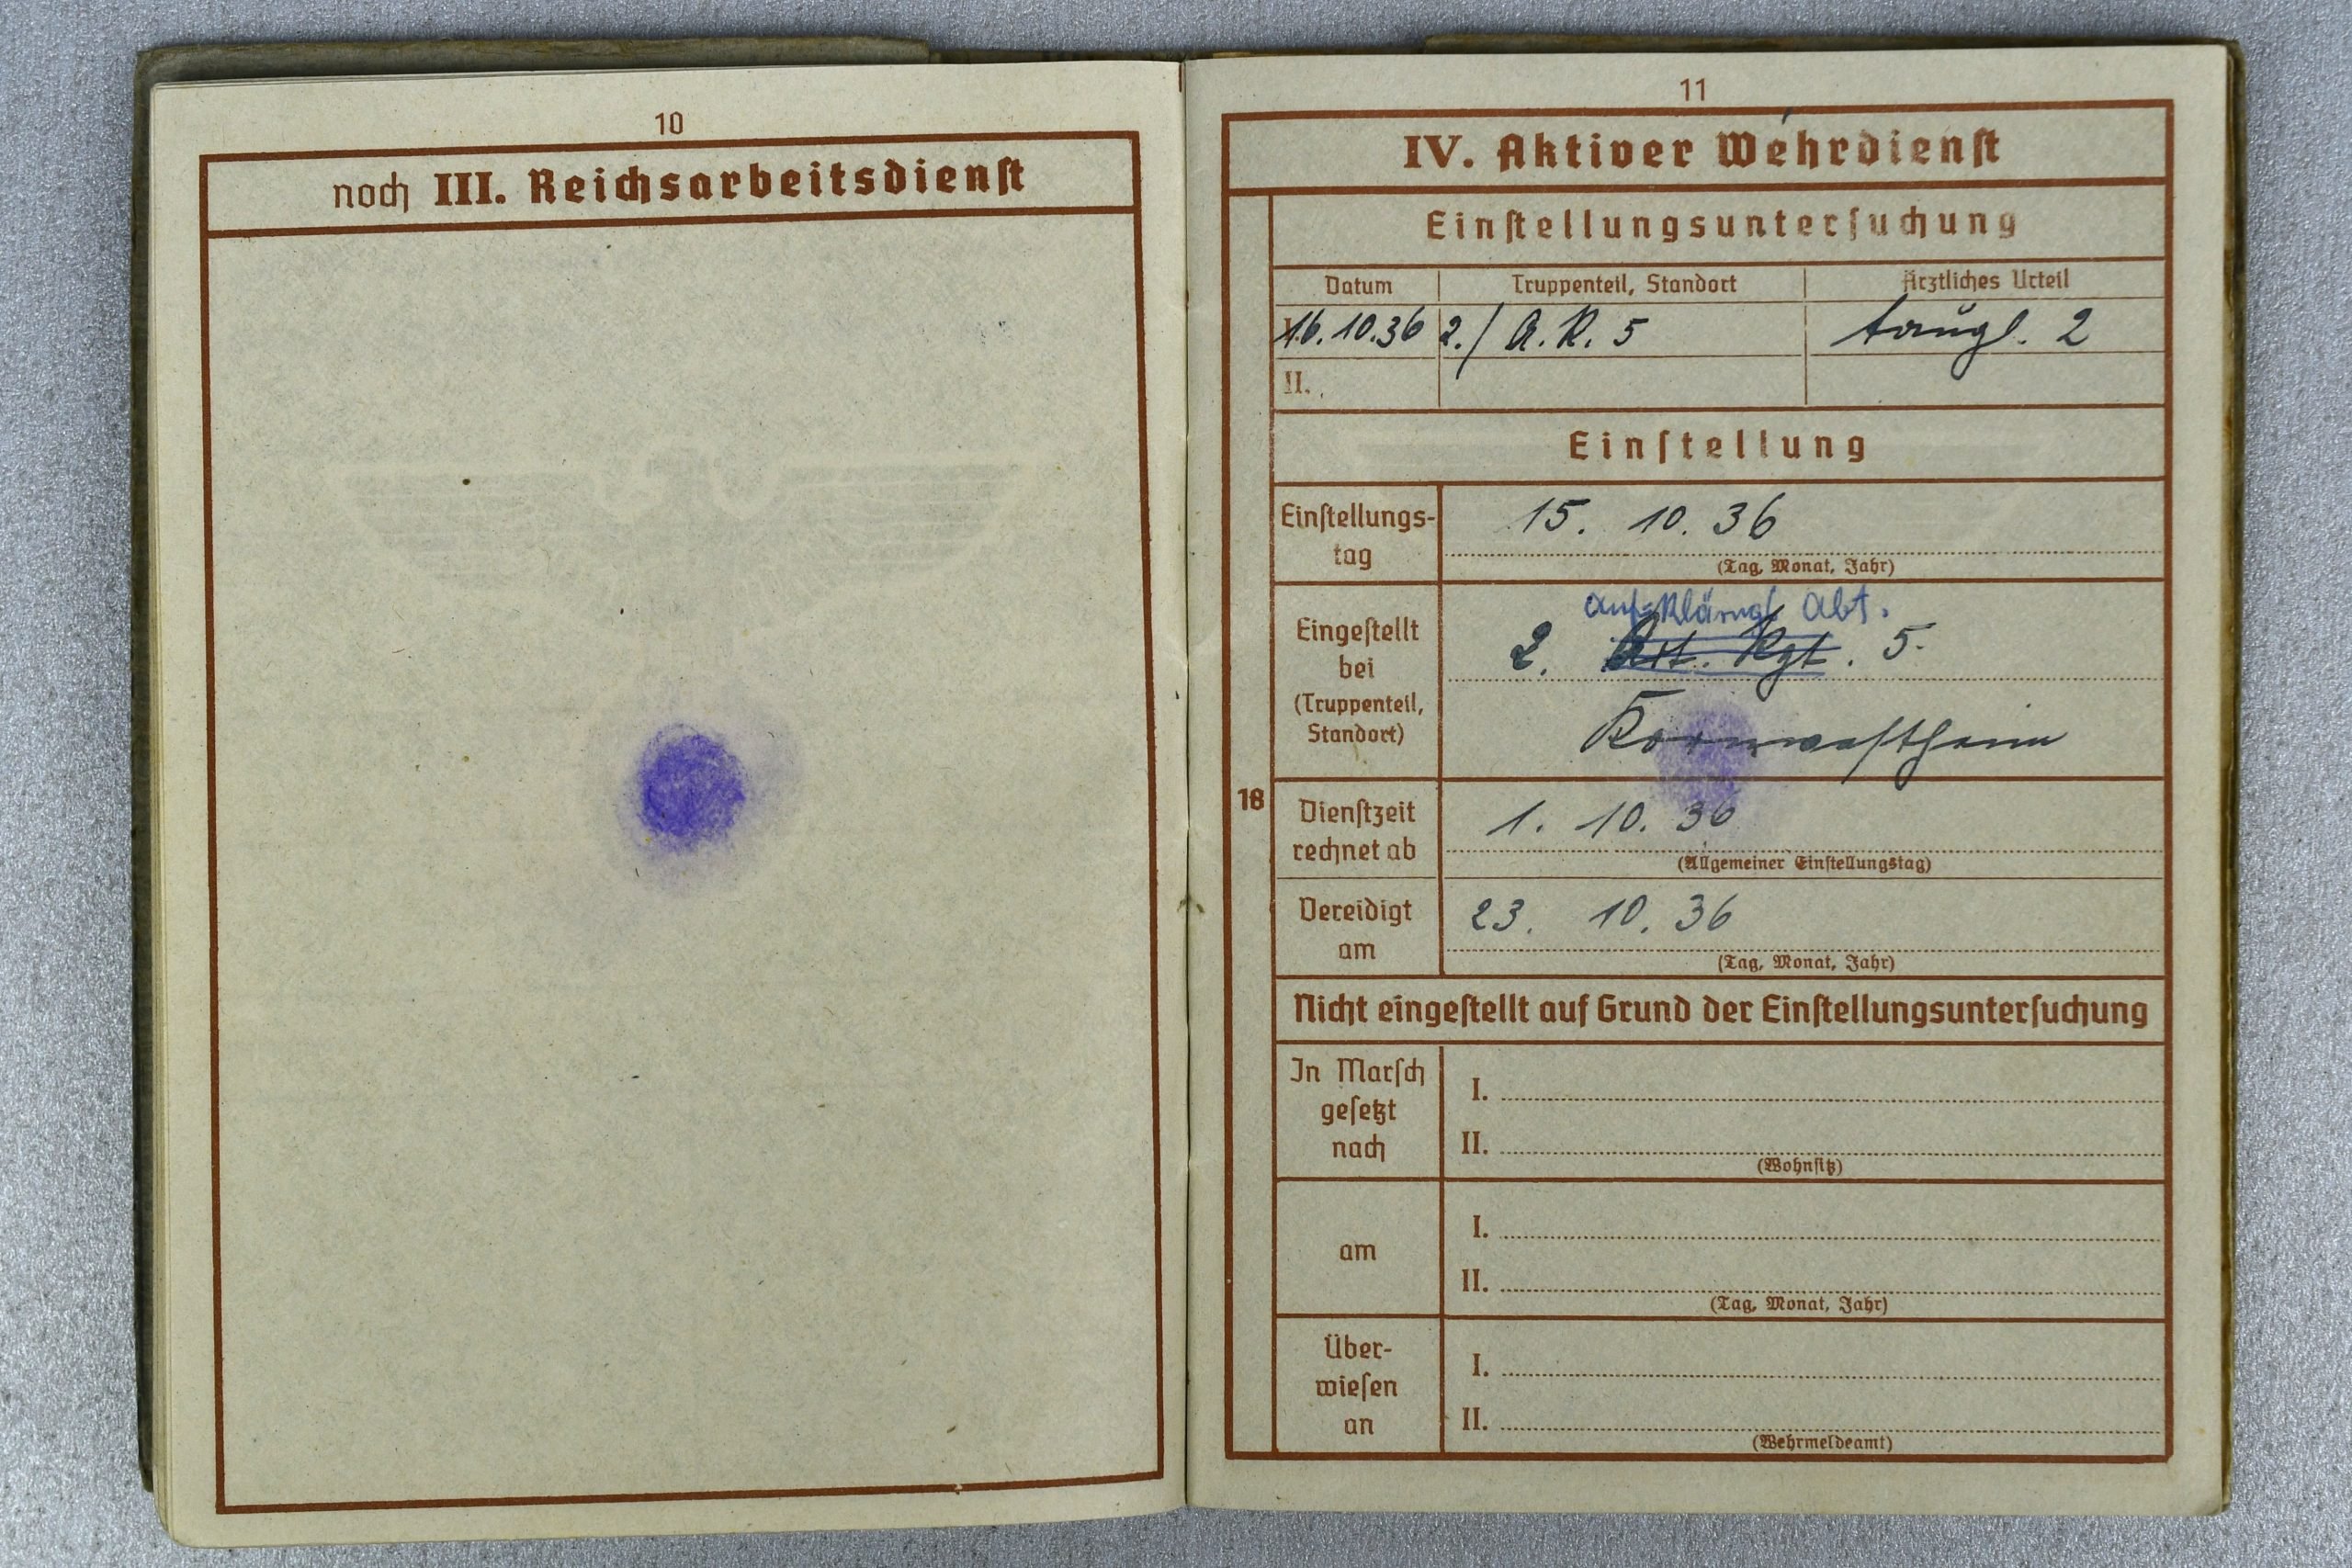 10
noch III. Reichsarbeitsdienst
11
IV. Aktiver Wehrdienst
Einstellungsuntersuchung
Datum Truppenteil, Standort Ärztliches Urteil
16.10.36 2./ A.R. 5 taugl. 2
II.
Einstellung
Einstellungs-
tag
15. 10. 36
(Tag, Monat, Jahr)
Eingestellt
bei
(Truppenteil,
Standort)
Aufklärungs Abt.
2. Art. Rgt. 5.
Kornwestheim
18
Dienstzeit
rechnet ab
1. 10. 36
(Allgemeiner Einstellungstag)
Vereidigt
am
23. 10. 36
(Tag, Monat, Jahr)
Nicht eingestellt auf Grund der Einstellungsuntersuchung
In Marsch
gesetzt
nach
I.
II.
(Wohnsitz)
am
I.
II.
(Tag, Monat, Jahr)
Über-
wiesen
an
I.
II.
(Wehrmeldeamt)